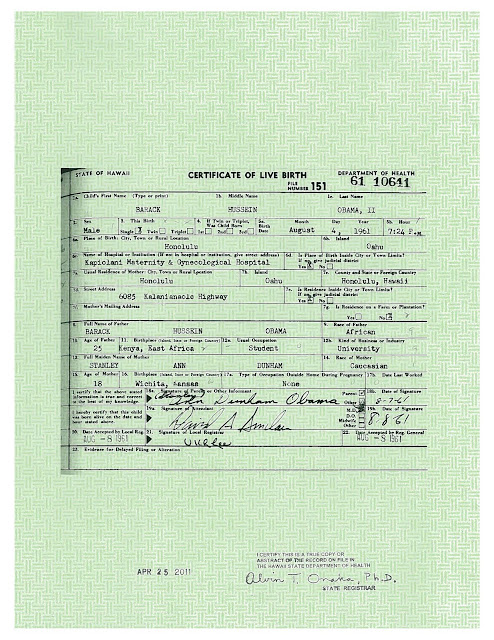 STATE OF HAWAII CERTIFICATE OF LIVE BIRTH DEPARTMENT OF HEALTH
FILE NUMBER 151 61 10641
1a. Child's First Name (Type or print) 1b. Middle Name 1c. Last Name
BARACK HUSSEIN OBAMA, II
2. Sex 3. This Birth 4. If Twin or Triplet, Was Child Born 5a. Birth Date Month Day Year 5b. Hour
Male Single Twin Triplet 1st 2nd 3rd August 4, 1961 7:24 P.M.
6a. Place of Birth: City, Town or Rural Location 6b. Island
Honolulu Oahu
6c. Name of Hospital or Institution (If not in hospital or institution, give street address) 6d. Is Place of Birth Inside City or Town Limits? If no, give judicial district
Kapiolani Maternity & Gynecological Hospital Yes X No
7a. Usual Residence of Mother: City, Town or Rural Location 7b. Island 7c. County and State or Foreign Country
Honolulu Oahu Honolulu, Hawaii
7d. Street Address 7e. Is Residence Inside City or Town Limits? If no, give judicial district
6085 Kalanianaole Highway Yes X No
7f. Mother's Mailing Address 7g. Is Residence on a Farm or Plantation?
Yes No X
8. Full Name of Father 9. Race of Father
BARACK HUSSEIN OBAMA African
10. Age of Father 11. Birthplace (Island, State or Foreign Country) 12a. Usual Occupation 12b. Kind of Business or Industry
25 Kenya, East Africa Student University
13. Full Maiden Name of Mother 14. Race of Mother
STANLEY ANN DUNHAM Caucasian
15. Age of Mother 16. Birthplace (Island, State or Foreign Country) 17a. Type of Occupation Outside Home During Pregnancy 17b. Date Last Worked
18 Wichita, Kansas None
I certify that the above stated information is true and correct to the best of my knowledge. 18a. Signature of Parent or Other Informant Parent Other 18b. Date of Signature
(Stanley) Ann Dunham Obama 8-7-61
I hereby certify that this child was born alive on the date and hour stated above. 19a. Signature of Attendant M.D. D.O. Midwife Other 19b. Date of Signature
David A Sinclair 8-8-61
20. Date Accepted by Local Reg. 21. Signature of Local Registrar 22. Date Accepted by Reg. General
AUG -8 1961 U K L Lee AUG -8 1961
23. Evidence for Delayed Filing or Alteration
APR 25 2011
I CERTIFY THIS IS A TRUE COPY OR
ABSTRACT OF THE RECORD ON FILE IN
THE HAWAII STATE DEPARTMENT OF HEALTH
Alvin T. Onaka, Ph.D.
STATE REGISTRAR